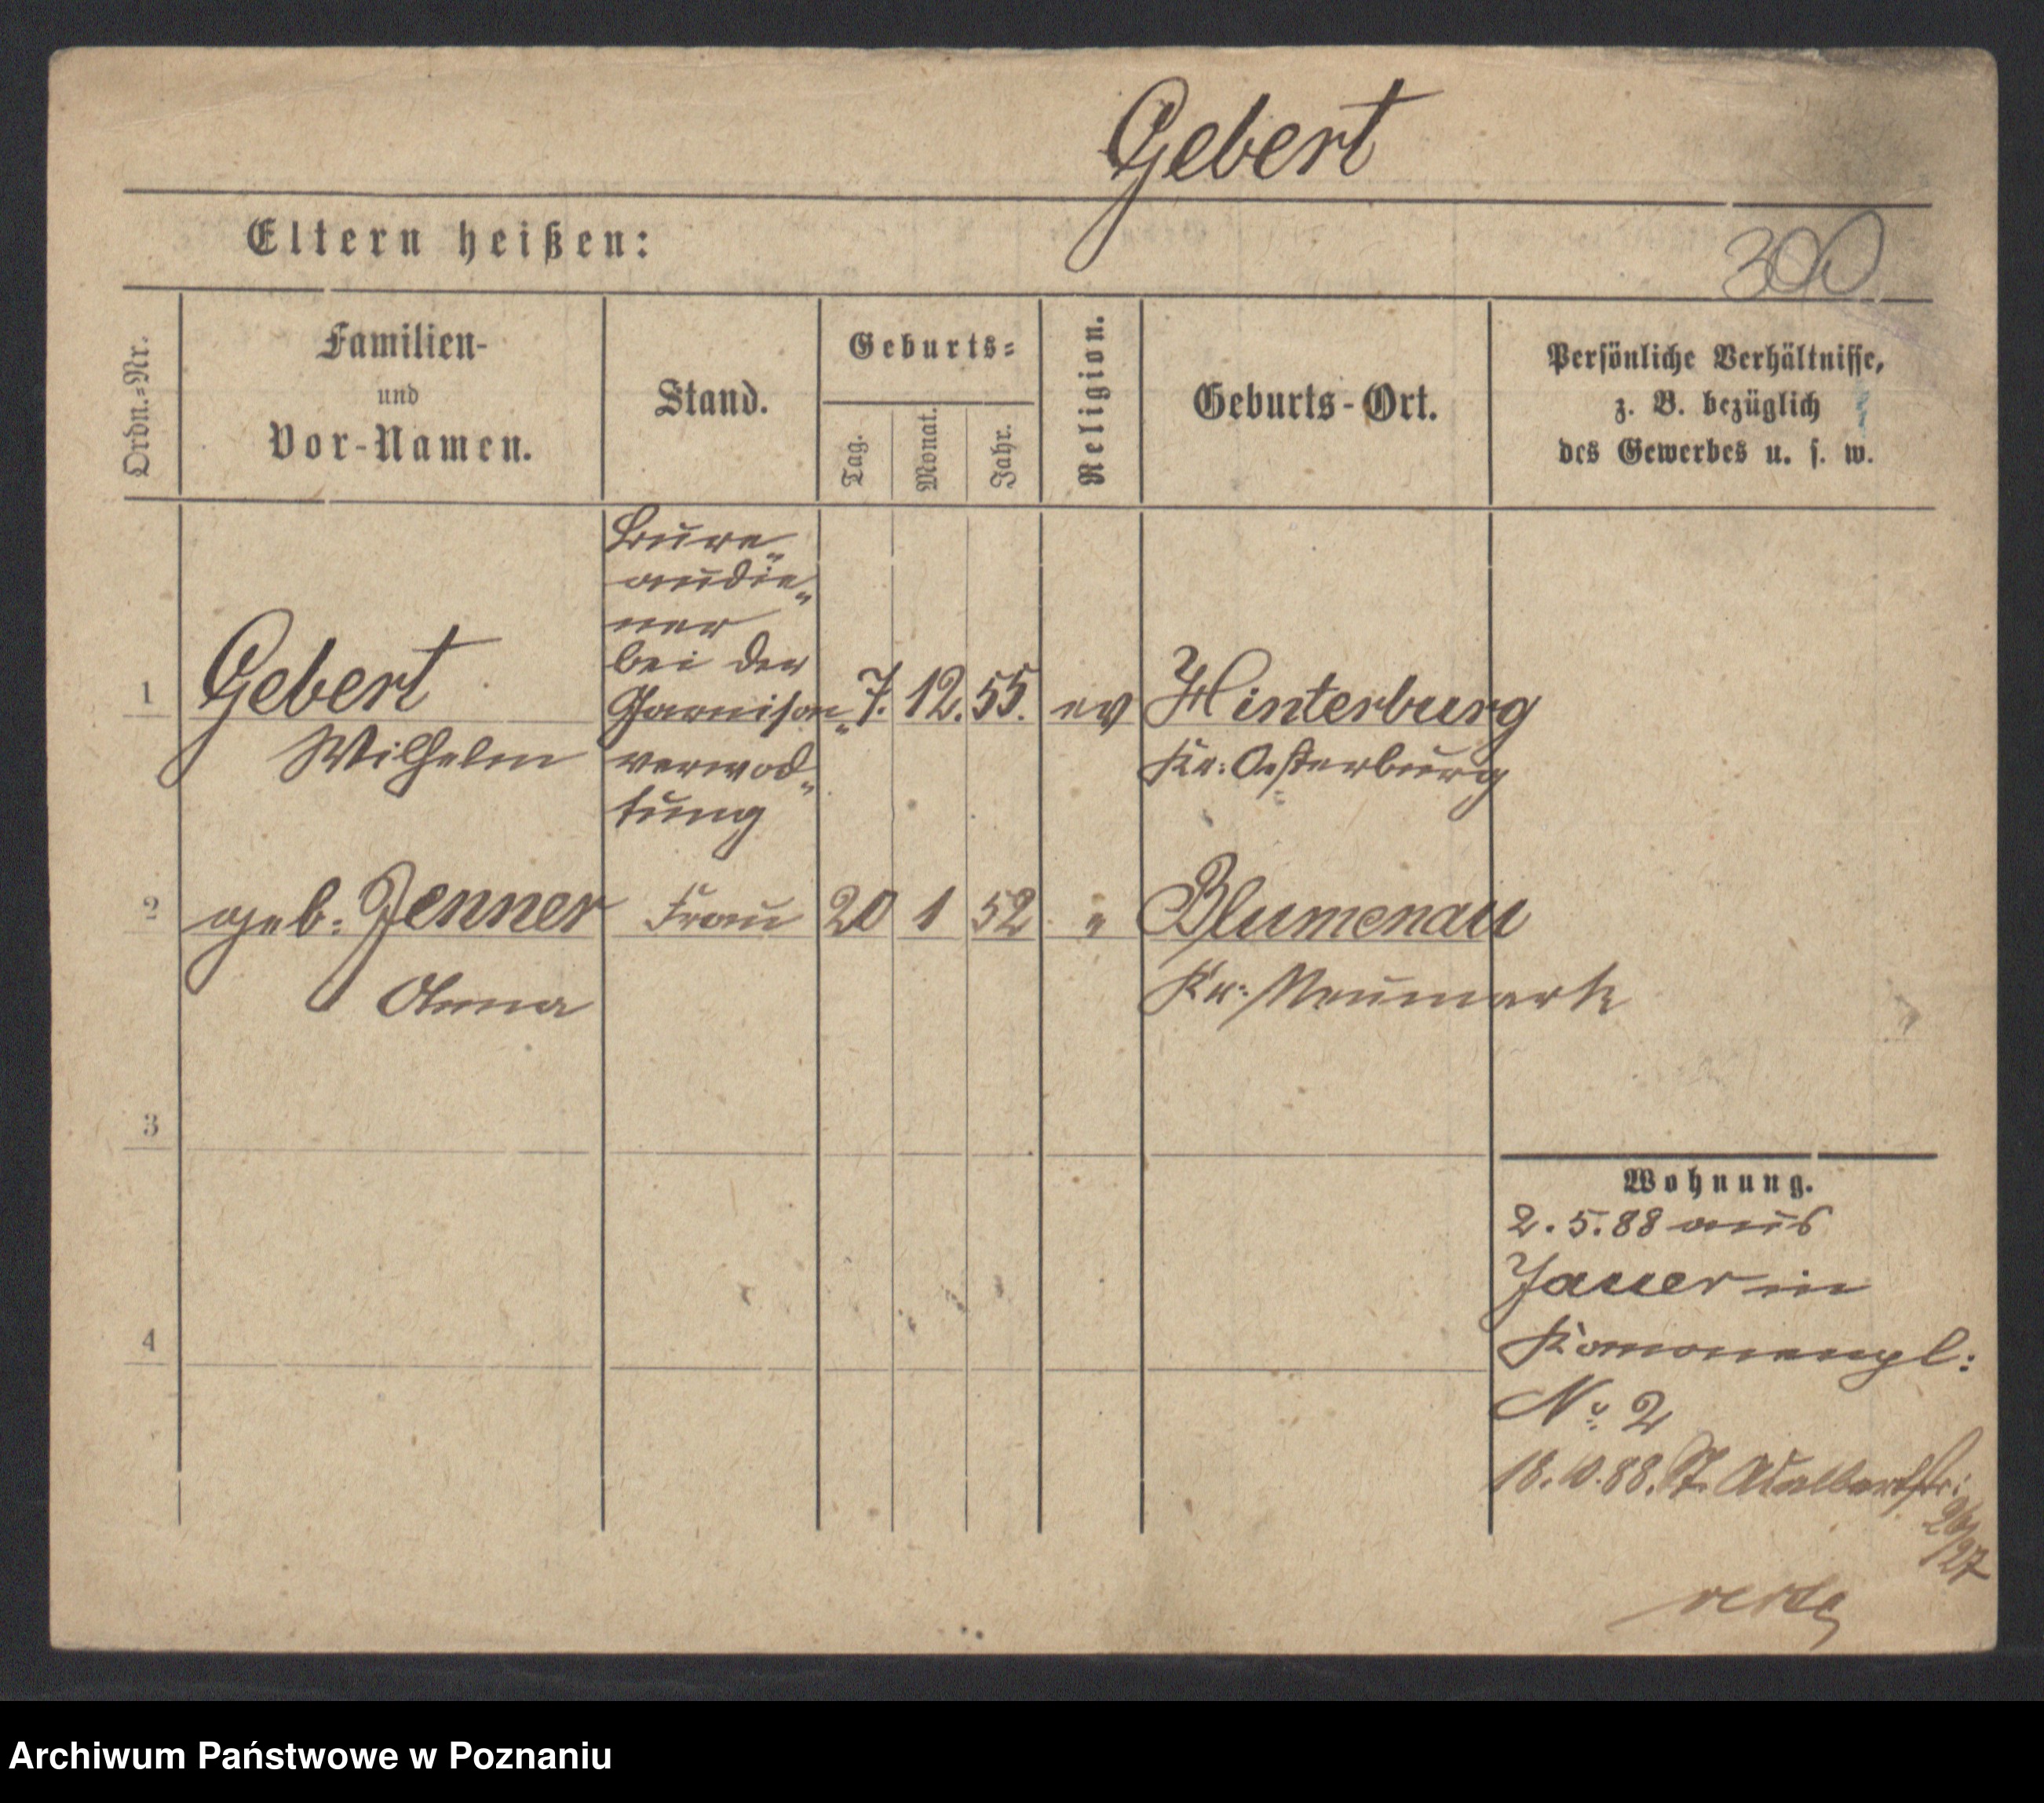 Gebert
Eltern heißen:
300
Ordn.=Nr.
Familien-
und
Vor-Namen.
Stand.
Geburts=
Tag.
Monat.
Jahr.
Religion.
Geburts-Ort.
Persönliche Verhältnisse,
z. B. bezüglich
des Gewerbes u. s. w.
1
Gebert
Wilhelm
Bure„
audie„
ner
bei der
Garnison„
verwal„
tung
7. 12. 55. ev
Hinterburg
Kr: Osterburg
2
geb: Jenner
Anna
Frau
20 1 52 "
Blumenau
Kr: Neumark
3
4
Wohnung.
2. 5. 88 aus
Jauer in
Kanonenpl:
No 2
18. 10. 88. St. Adalbertstr:
26/27
verte
Archiwum Państwowe w Poznaniu